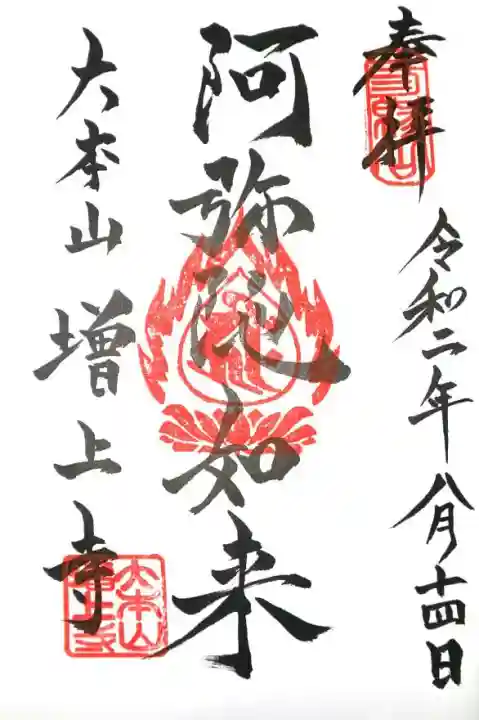 奉拝
令和二年八月十四日
阿弥陀如来
大本山増上寺